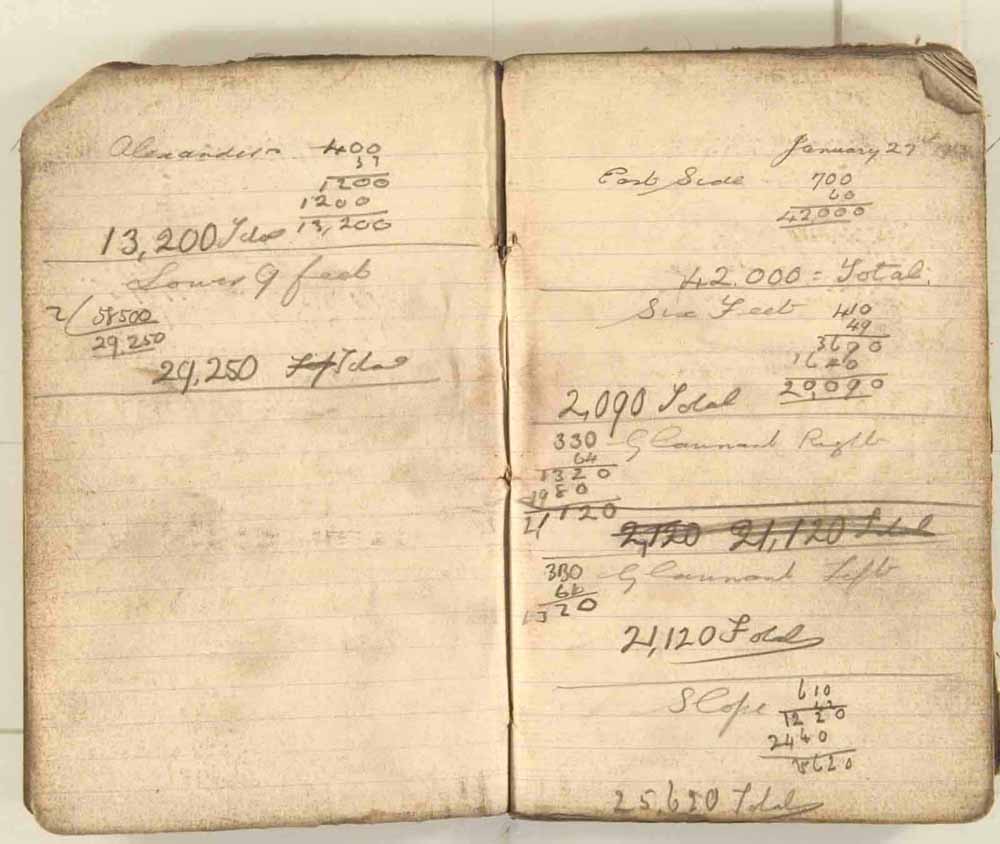 Alexander 400
37
1200
1200
13,200
13,200 Total
Lower 9 feet
2/ 58500
29,250
29,250 Total
January 27
East Side 700
60
42,000
42.000 = Total.
Six Feet 410
49
3690
20,090
2,090 Total
330 Glannant Right
64
1320
1980
21120
2,120 21,120 Total
330 Glannant Left
1320
21,120 Total
Slope 610
42
1220
2440
25,620 Total